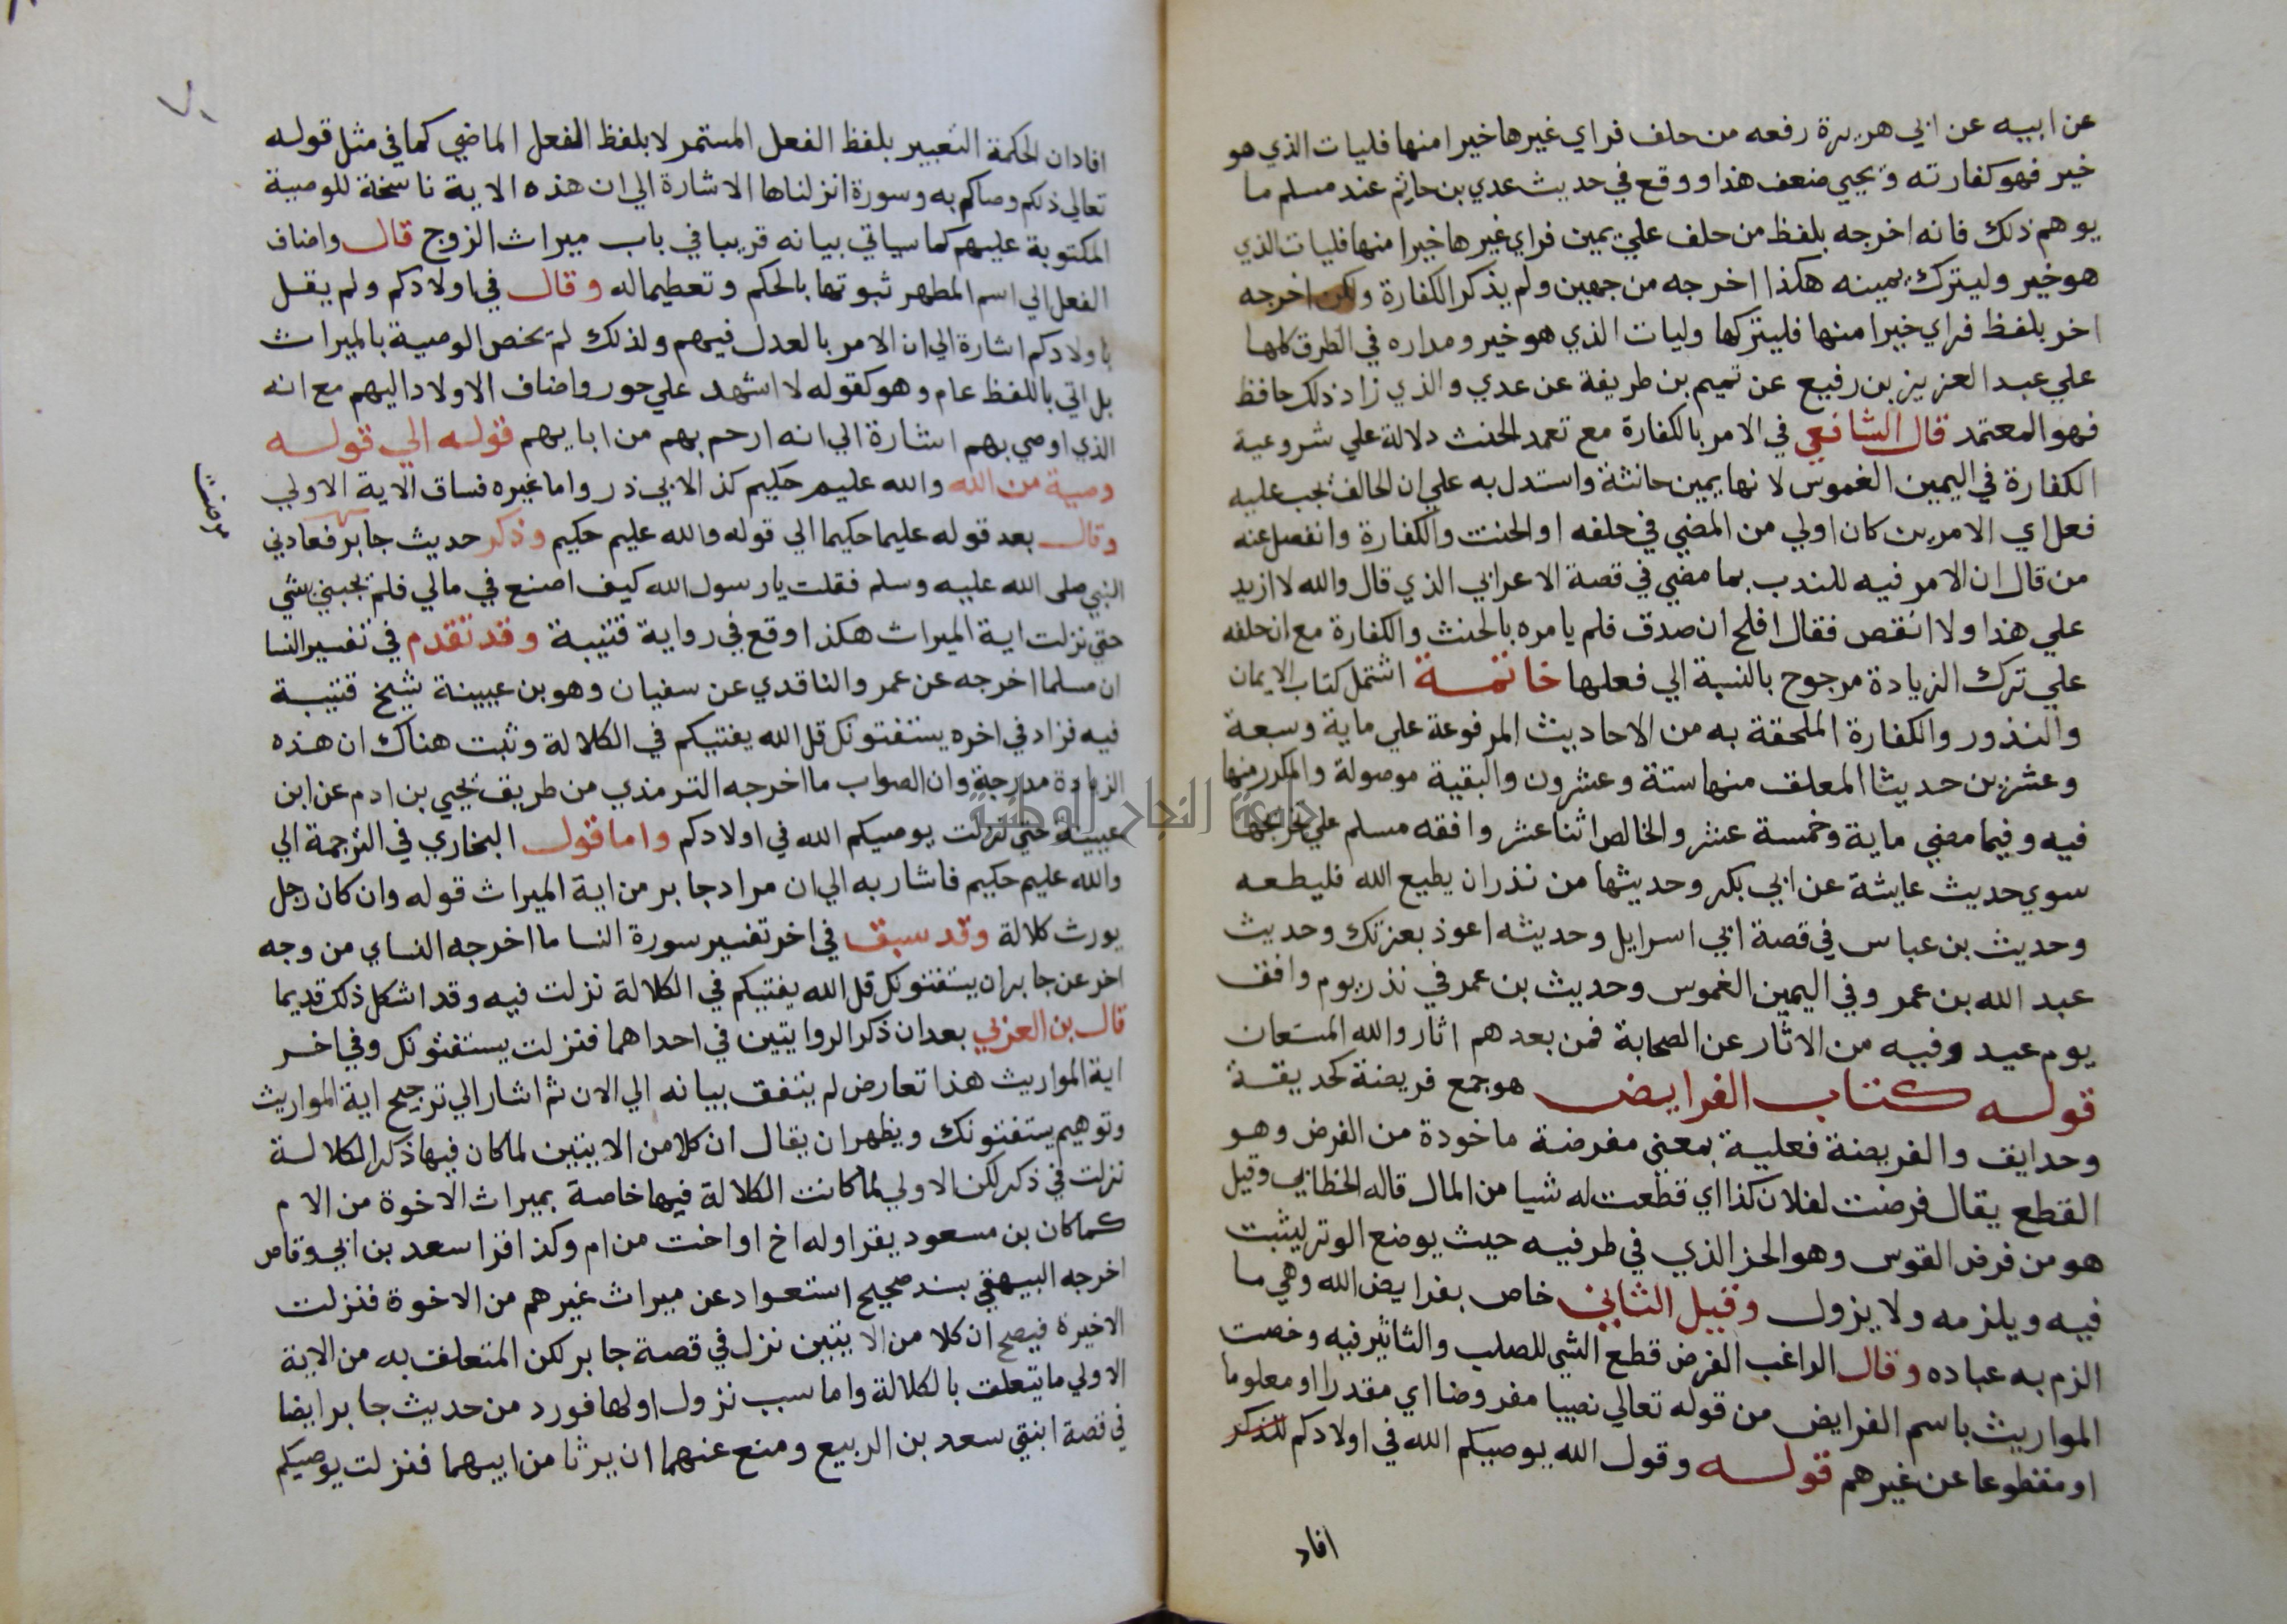 عن ابيه عن ابي هريرة رفعه من حلف فراي غيرها خيرا منها فليات الذي هو
خير فهو كفارته ويحيي ضعف هذا ووقع في حديث عدي بن حاتم عند مسلم ما
يوهم ذلك فانه اخرجه بلفظ من حلف علي يمين فراي غيرها خيرا منها فليات الذي
هو خير وليترك يمينه هكذا اخرجه من جهين ولم يذكر الكفارة ولكن اخرجه
اخر بلفظ فراي خيرا منها فليتركها وليات الذي هو خير ومداره في الطرق كلها
علي عبد العزيز بن رفيع عن تميم بن طريفة عن عدي والذي زاد ذلك حافظ
فهو المعتمد قال الشافعي في الامر بالكفارة مع تعمد الحنث دلالة علي شروعية
الكفارة في اليمين الغموس لانها يمين حانثة واستدل به علي ان الحالف يجب عليه
فعل اي الامرين كان اولي من المضي في حلفه او الحنث والكفارة وانفصل عنه
من قال ان الامر فيه للندب بما مضي في قصة الاعرابي الذي قال والله لا ازيد
علي هذا ولا انقص فقال افلح ان صدق فلم يامره بالحنث والكفارة مع ان حلفه
علي ترك الزيادة مرجوح بالنسبة الي فعلها خاتمة اشتمل كتاب الايمان
والنذور والكفارة الملحقة به من الاحاديث المرفوعة علي ماية وسبعة
وعشرين حديثا المعلق منها ستة وعشرون والبقية موصولة والمكرر منها
فيه وفيما مضي ماية وخمسة عشر والخالص اثنا عشر وافقه مسلم علي تخريجها
سوي حديث عايشة عن ابي بكر وحديثها من نذر ان يطيع الله فليطعه
وحديث بن عباس في قصة ابي اسرايل وحديثه اعوذ بعزتك وحديث
عبد الله بن عمر وفي اليمين الغموس وحديث بن عمر في نذر يوم وافق
يوم عيد وفيه من الاثار عن الصحابة فمن بعدهم اثار والله المستعان
قوله كتاب الفرايض هو جمع فريضة كحديقة
وحدايق والفريضة فعلية بمعني مفرضة ماخودة من الفرض وهو
القطع يقال فرضت لفلان كذا اي قطعت له شيا من المال قاله الخطابي وقيل
هو من فرض القوس وهو الحز الذي في طرفيه حيث يوضع الوتر ليثبت
فيه ويلزمه ولا يزول وقيل الثاني خاص بفرايض الله وهي ما
الزم به عباده وقال الراغب الفرض قطع الشي للصلب والتاثير فيه وخصت
المواريث باسم الفرايض من قوله تعالي نصيبا مفروضا اي مقدرا او معلوما
او مقطوعا عن غيرهم قوله وقول الله يوصيكم الله في اولادكم للذكر
افاد
٧٠
افاد ان الحكمة التعبير بلفظ الفعل المستمر لا بلفظ الفعل الماضي كما في مثل قوله
تعالي ذلكم وصاكم به وسورة انزلناها الاشارة الي ان هذه الاية ناسخة للوصية
المكتوبة عليهم كما سياتي بيانه قريبا في باب ميراث الزوج قال واضاف
الفعل الي اسم المطهر ثبوتها بالحكم وتعظيما له وقال في اولادكم ولم يقل
باولادكم اشارة الي ان الامر بالعدل فيهم ولذلك لم يخص الوصية بالميراث
بل اتي باللفظ عام وهو كقوله لا اشهد علي جور واضاف الاولاد اليهم مع انه
الذي اوصي بهم اشارة الي انه ارحم بهم من ابايهم قوله الي قوله
وصية من الله والله عليم حكيم كذا لابي ذر واما غيره فساق الاية الاولي
وقال بعد قوله عليما حكيما الي قوله والله عليم حكيم وذكر حديث جابر فعادني
مرضت
النبي صلي الله عليه وسلم فقلت يا رسول الله كيف اصنع في مالي فلم يجبني بشي
حتي نزلت اية الميراث هكذا وقع في رواية قتيبة وقد تقدم في تفسير النسا
ان مسلما اخرجه عن عمر والناقدي عن سفيان وهو بن عيينة شيخ قتيبة
فيه فزاد في اخره يستفتونك قل الله يفتيكم في الكلالة وثبت هناك ان هذه
الزيادة مدرجة وان الصواب ما اخرجه الترمذي من طريق يحيي بن ادم عن ابن
عيينة حتي نزلت يوصيكم الله في اولادكم واما قول البخاري في الترجمة الي
والله عليم حكيم فاشار به الي ان مراد جابر من اية الميراث قوله وان كان رجل
يورث كلالة وقد سبق في اخر تفسير سورة النسا ما اخرجه النساي من وجه
اخر عن جابر ان يستفتونك قل الله يفتيكم في الكلالة نزلت فيه وقد اشكل ذلك قديما
قال بن العربي بعد ان ذكر الروايتين في احداهما فنزلت يستفتونك وفي اخر
اية المواريث هذا تعارض لم يتفق بيانه الي الان ثم اشار الي ترجيح اية المواريث
وتوهيم يستفتونك ويظهر ان يقال ان كلا من الايتين لما كان فيها ذكر الكلالة
نزلت في ذكر لكن الاولي لما كانت الكلالة فيها خاصة بميراث الاخوة من الام
كما كان بن مسعود يقرا وله اخ او اخت من ام وكذا قرا سعد بن ابي وقاص
اخرجه البيهقي بسند صحيح استعواد عن ميراث غيرهم من الاخوة فنزلت
الاخيرة فيصح ان كلا من الايتين نزل في قصة جابر لكن المتعلق به من الاية
الاولي ما يتعلق بالكلالة واما سبب نزول اولها فورد من حديث جابر ايضا
في قصة ابنتي سعد بن الربيع ومنع عنهما ان يرثا من ابيهما فنزلت يوصيكم
جامعة النجاح الوطنية